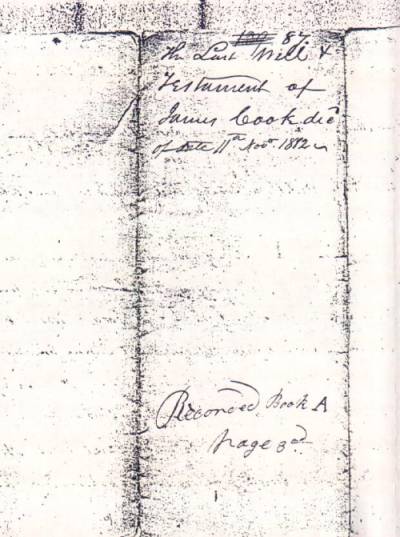 87
The Last Will &
Testament of
James Cook dec
of date 11th Novr 1812
Recorded Book A
page 3rd